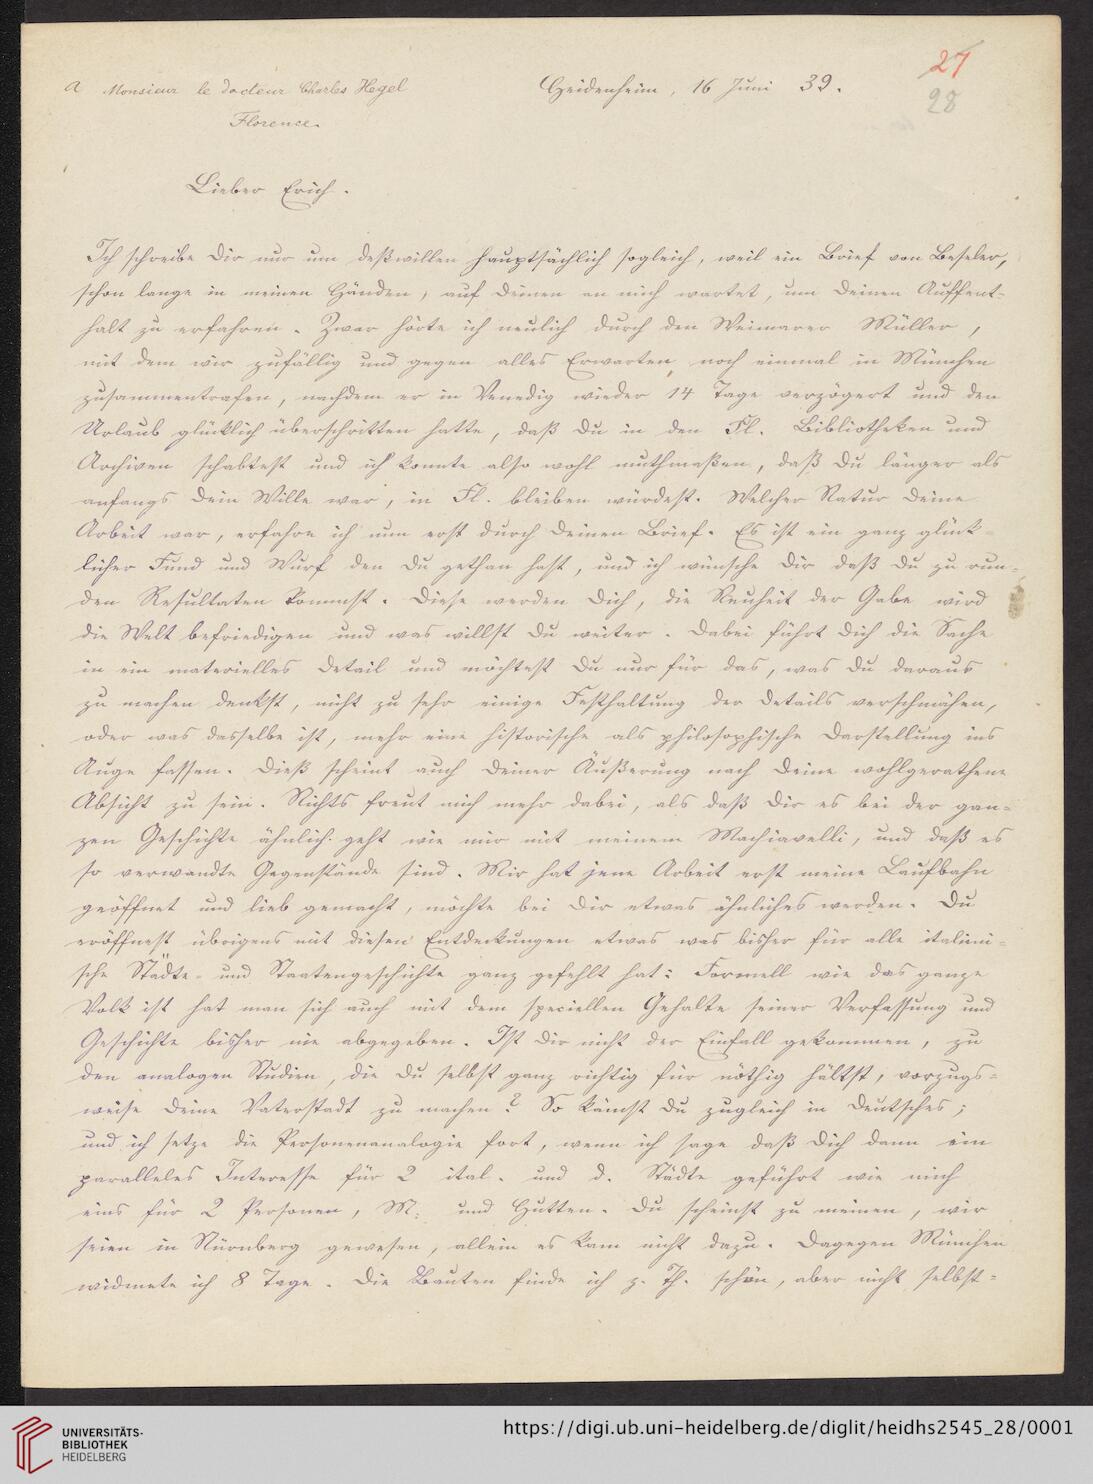 27
28
a Monsieur le docteur Charles Hegel
Florence.
Heidenheim, 16 Juni 39.
Lieber Erich.
Ich schreibe Dir nur um deßwillen hauptsächlich sogleich, weil ein Brief von Beseler,
schon lange in meinen Händen, auf Deinen an mich wartet, um Deinen Auffent-
halt zu erfahren. Zwar hörte ich neulich durch den Weimarer Müller,
mit dem wir zufällig und gegen alles Erwarten noch einmal in München
zusammentrafen, nachdem er in Venedig wieder 14 Tage verzögert und den
Urlaub glücklich überschritten hatte, daß Du in den Fl. Bibliotheken und
Archiven schabtest und ich konnte also wohl muthmaßen, daß Du länger als
anfangs Dein Wille war, in Fl. bleiben würdest. Welcher Natur Deine
Arbeit war, erfahre ich nun erst durch Deinen Brief. Es ist ein ganz glück-
licher Fund und Wurf den Du gethan hast, und ich wünsche Dir daß Du zu run-
den Resultaten kommst. Diese werden Dich, die Neuheit der Gabe wird
die Welt befriedigen und was willst Du weiter. Dabei führt Dich die Sache
in ein materielles Detail und möchtest Du nur für das, was Du daraus
zu machen denkst, nicht zu sehr einige Festhaltung der Details verschmähen,
oder was dasselbe ist, mehr eine historische als philosophische Darstellung ins
Auge fassen. Dieß scheint auch Deiner Äußerung nach Deine wohlgerathene
Absicht zu sein. Nichts freut mich mehr dabei, als daß Dir es bei der gan-
zen Geschichte ähnlich geht wie mir mit meinem Machiavelli, und daß es
so verwandte Gegenstände sind. Mir hat jene Arbeit erst meine Laufbahn
geöffnet und lieb gemacht, möchte bei Dir etwas ähnliches werden. Du
eröffnest übrigens mit diesen Entdeckungen etwas was bisher für alle italini-
sche Städte- und Staatengeschichte ganz gefehlt hat: Formell wie das ganze
Volk ist hat man sich auch mit dem speciellen Gehalte seiner Verfassung und
Geschichte bisher nie abgegeben. Ist Dir nicht der Einfall gekommen, zu
den analogen Studien, die Du selbst ganz richtig für nöthig hältst, vorzugs-
weise Deine Vaterstadt zu machen? So kämst Du zugleich in Deutsches;
und ich setze die Personenanalogie fort, wenn ich sage daß Dich dann ein
paralleles Interesse für 2 ital. und d. Städte geführt wie mich
eins für 2 Personen, M. und Hutten. Du scheinst zu meinen, wir
seien in Nürnberg gewesen, allein es kam nicht dazu. Dagegen München
widmete ich 8 Tage. Die Bauten finde ich z. Th. schön, aber nicht selbst-
UNIVERSITÄTS-
BIBLIOTHEK
HEIDELBERG
https://digi.ub.uni-heidelberg.de/diglit/heidhs2545_28/0001